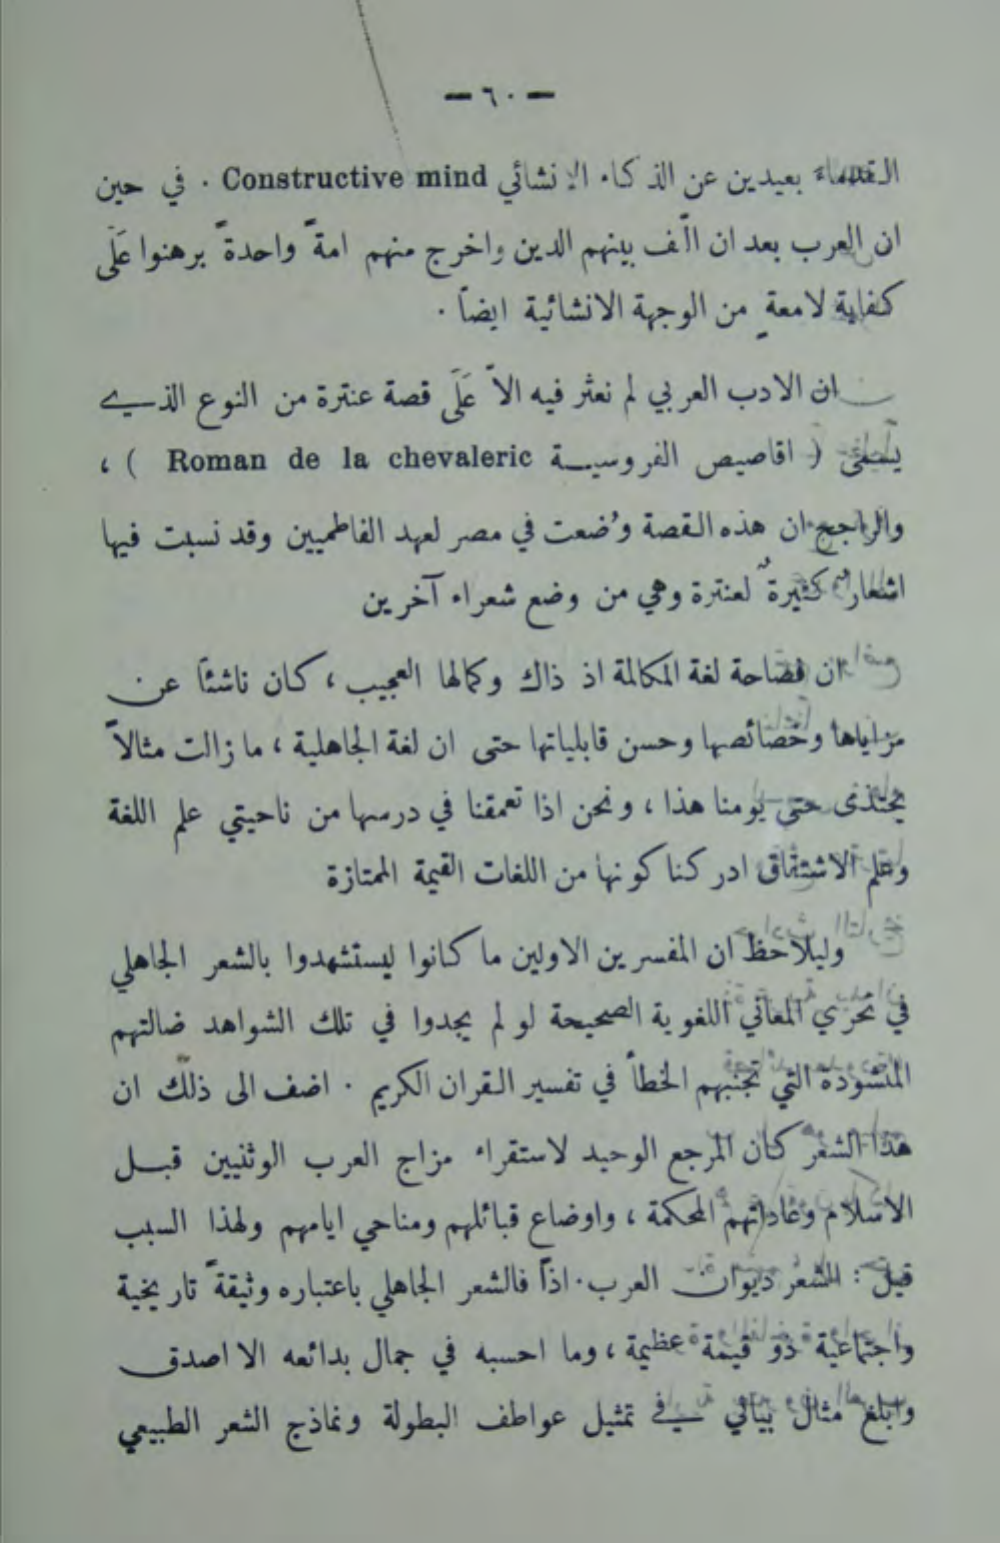 — ٦٠ —
القدماء بعيدين عن الذكاء الانشائي Constructive mind . في حين
ان العرب بعد ان الّف بينهم الدين واخرج منهم امةً واحدةً برهنوا عَلَى
كفاية لامعةٍ من الوجهة الانشائية ايضاً .
ان الادب العربي لم نعثر فيه الاّ عَلَى قصة عنترة من النوع الذي
يسمى ( اقاصيص الفروسية Roman de la chevaleric ) ،
والراجح ان هذه القصة وُضعت في مصر لعهد الفاطميين وقد نسبت فيها
اشعارٌ كثيرةٌ لعنترة وهي من وضع شعراء آخرين
ان فصاحة لغة المكالمة اذ ذاك وكمالها العجيب ، كان ناشئاً عن
مزاياها وخصائصها وحسن قابلياتها حتى ان لغة الجاهلية ، ما زالت مثالاً
يحتذى حتى يومنا هذا ، ونحن اذا تعمقنا في درسها من ناحيتي علم اللغة
وعلم الاشتقاق ادركنا كونها من اللغات القيمة الممتازة
وليلاحظ ان المفسرين الاولين ما كانوا ليستشهدوا بالشعر الجاهلي
في تحري المعاني اللغوية الصحيحة لو لم يجدوا في تلك الشواهد ضالتهم
المنشودة التي تجنبهم الخطأ في تفسير القران الكريم . اضف الى ذلك ان
هذا الشعر كان المرجع الوحيد لاستقراء مزاج العرب الوثنيين قبل
الاسلام وعاداتهم المحكمة ، واوضاع قبائلهم ومناحي ايامهم ولهذا السبب
قيل : الشعر ديوان العرب . اذاً فالشعر الجاهلي باعتباره وثيقةً تاريخية
واجتماعية ذو قيمة عظيمة ، وما احسبه في جمال بدائعه الا اصدق
وابلغ مثال بياني في تمثيل عواطف البطولة ونماذج الشعر الطبيعي